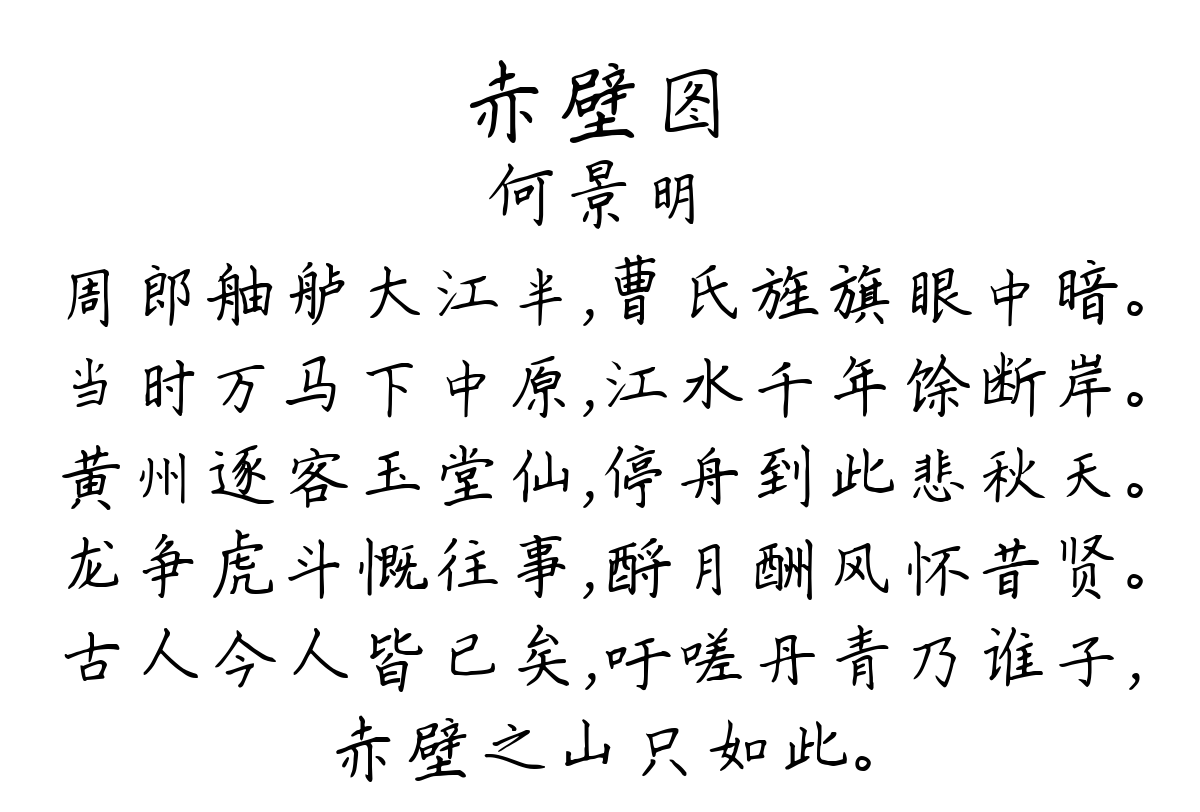 赤壁图
何景明
周郎舳舻大江半,曹氏旌旗眼中暗。
当时万马下中原,江水千年馀断岸。
黄州逐客玉堂仙,停舟到此悲秋天。
龙争虎斗慨往事,酹月酬风怀昔贤。
古人今人皆已矣,吁嗟丹青乃谁子,
赤壁之山只如此。